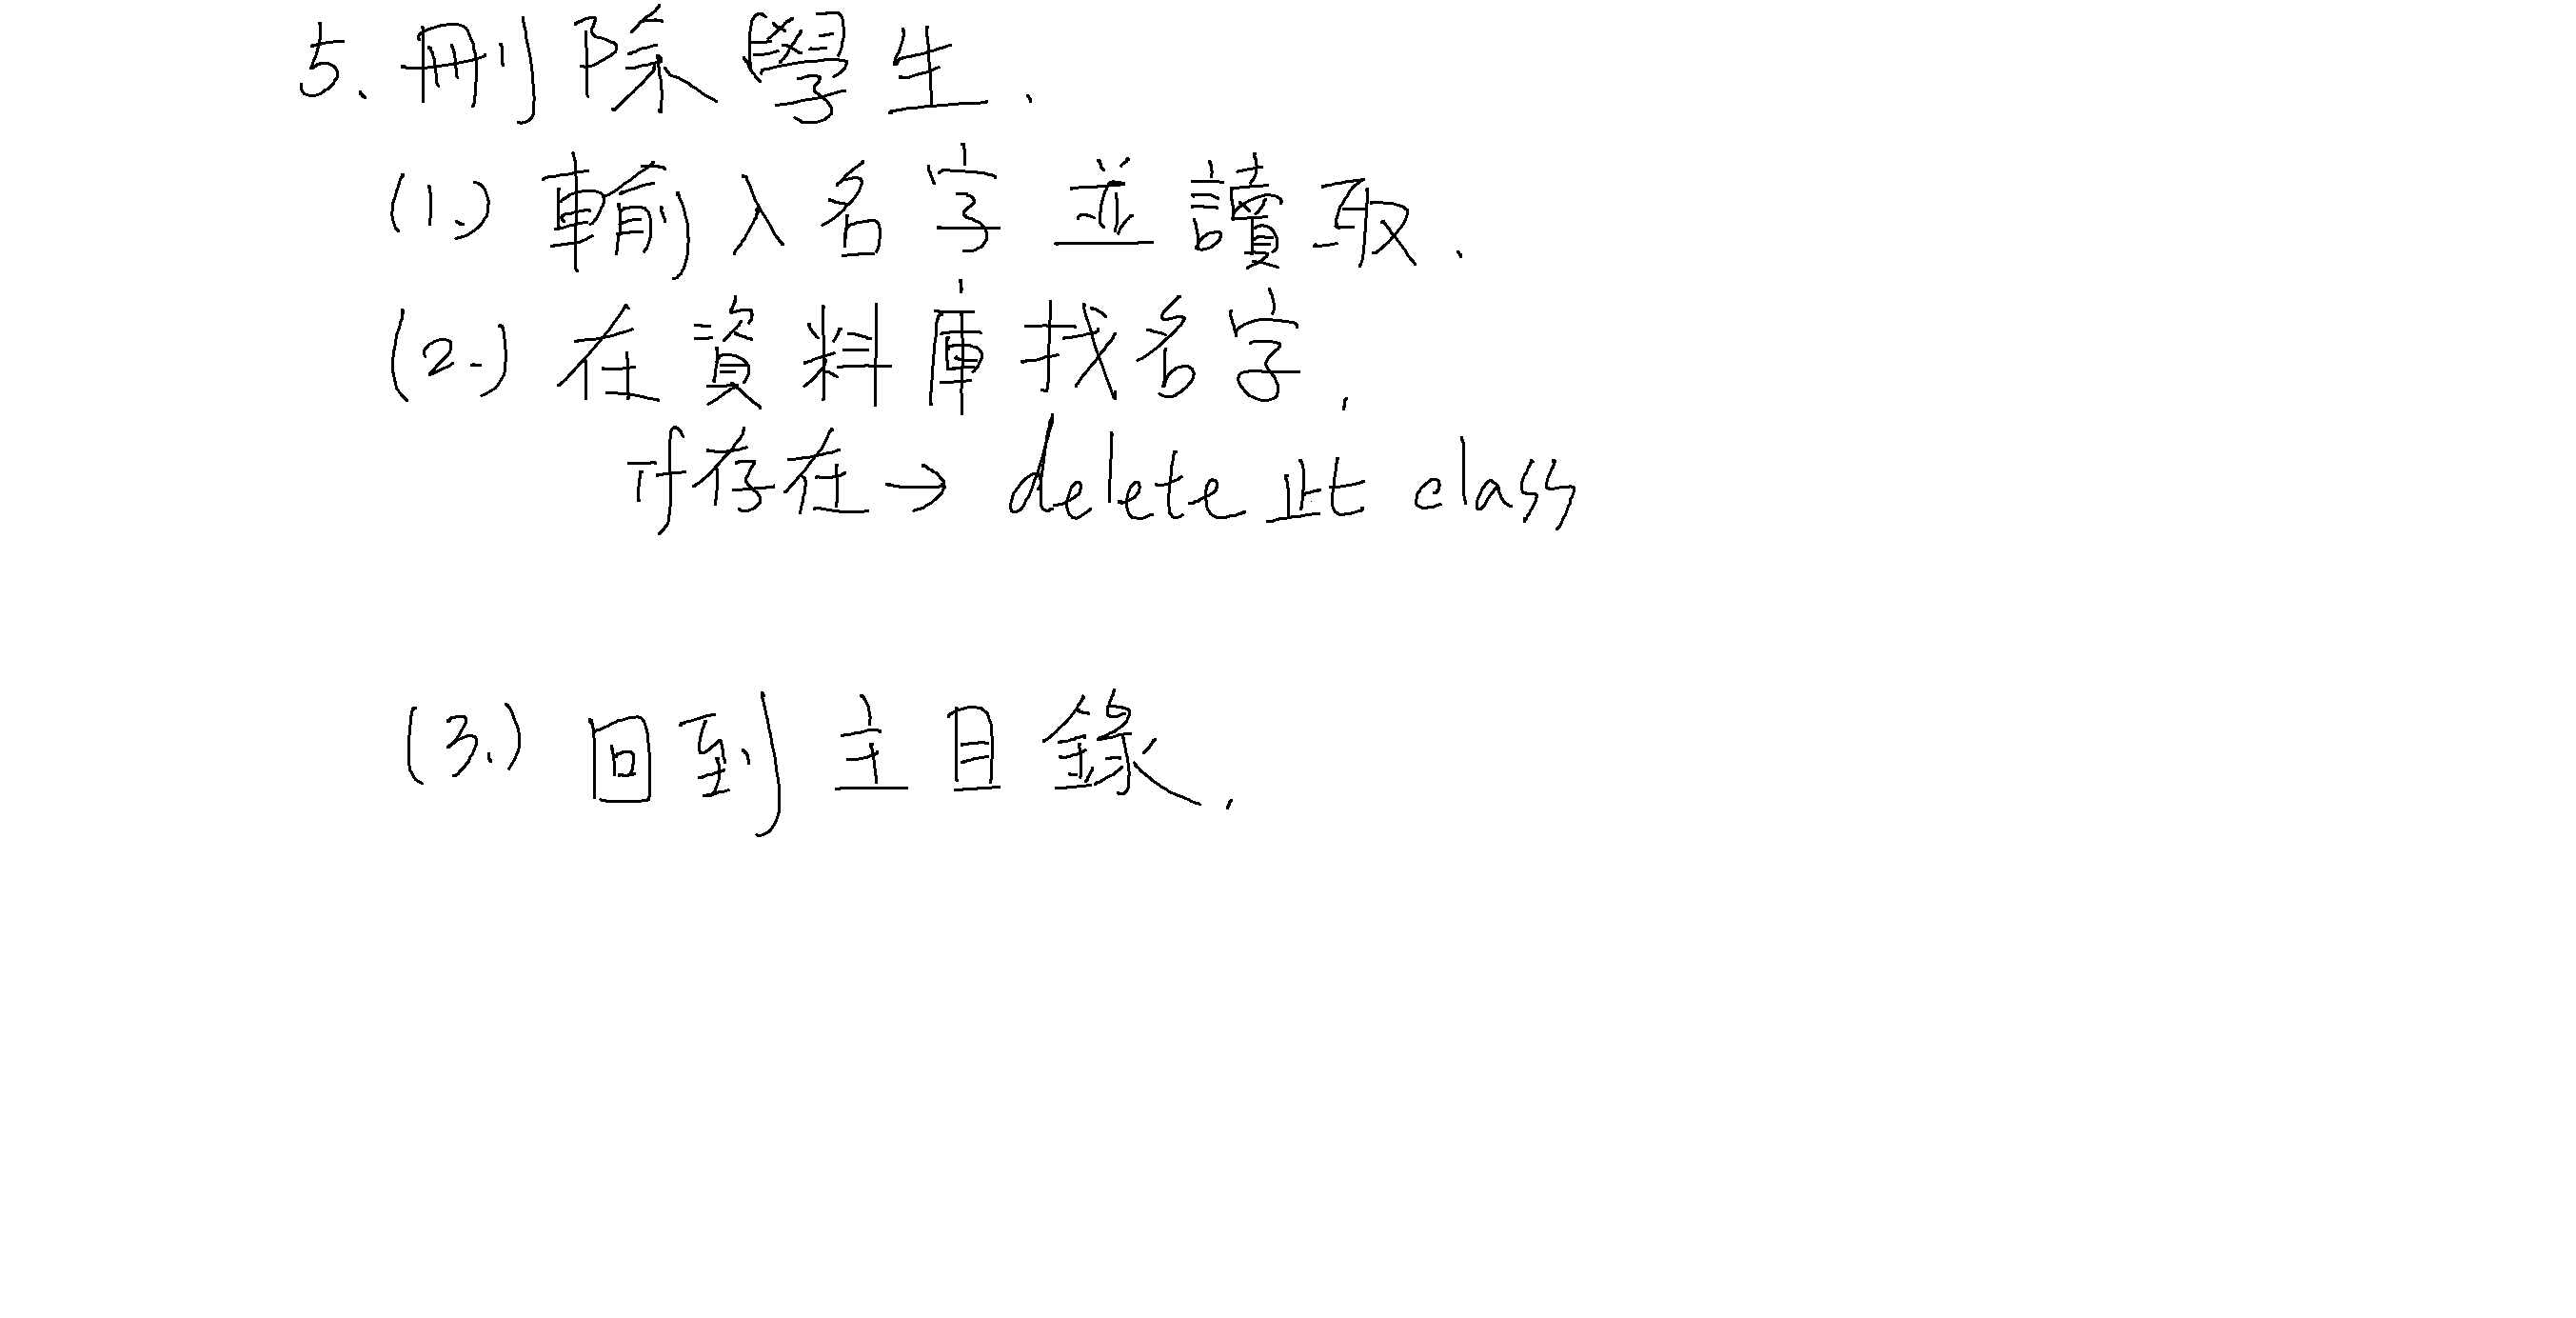 5. 刪除學生.
(1.) 輸入名字並讀取.
(2.) 在資料庫找名字.
if存在→ delete 此 class
(3.) 回到主目錄.